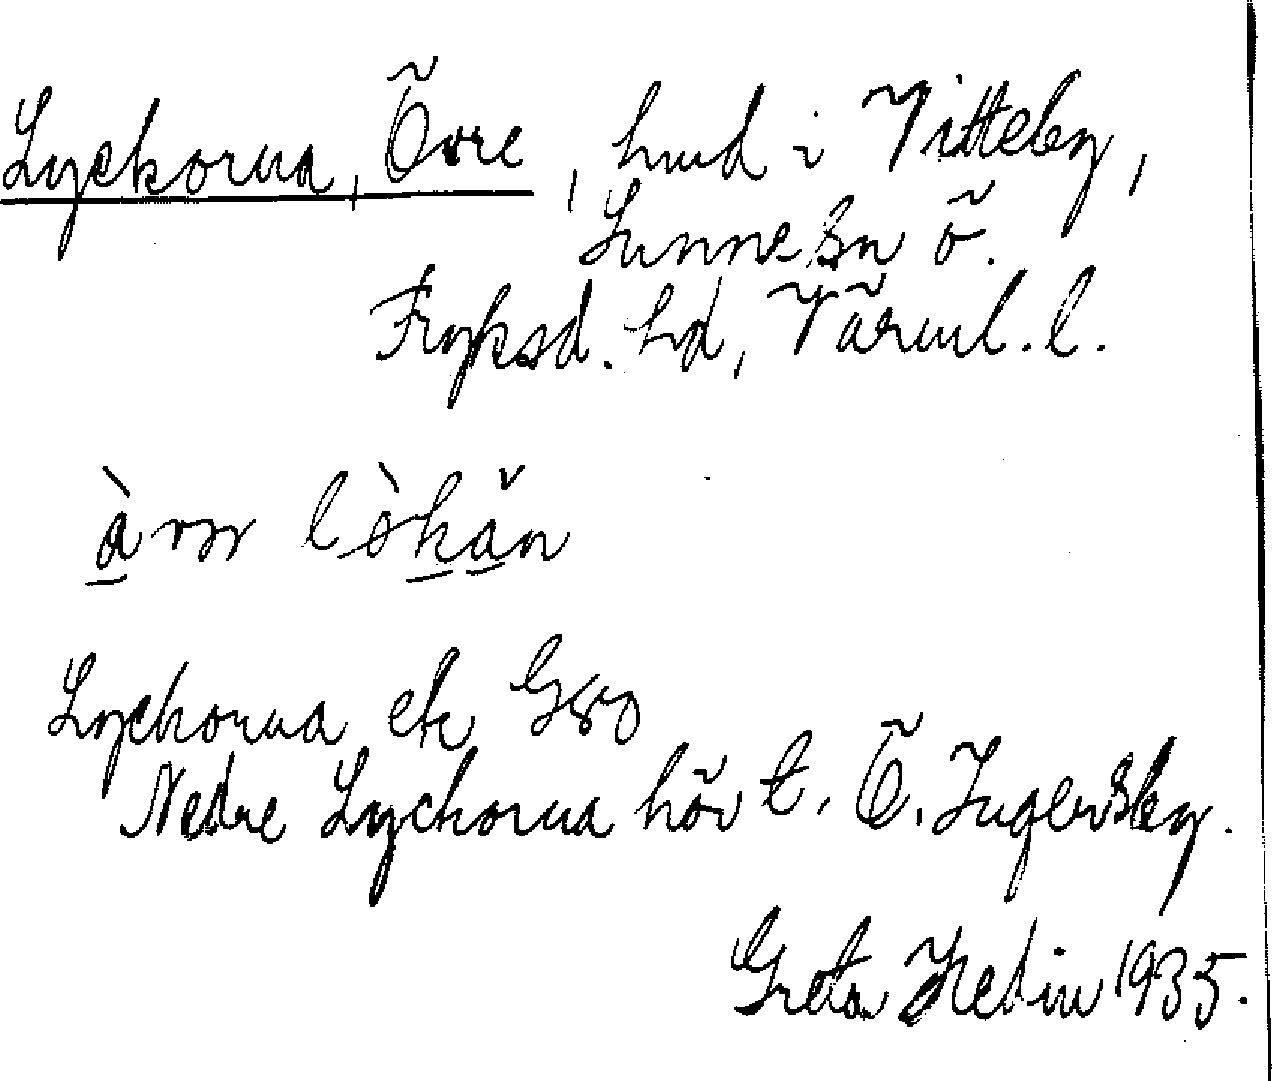 Lyckorna, Övre, hmd i Vitteby,
Sunne sn ö.
Fryksd. hd, Värml. l.
Lyckorna ek G80
Nedre Lyckorna hör t. Ö. Ingersby.
Greta Hedin 1935.